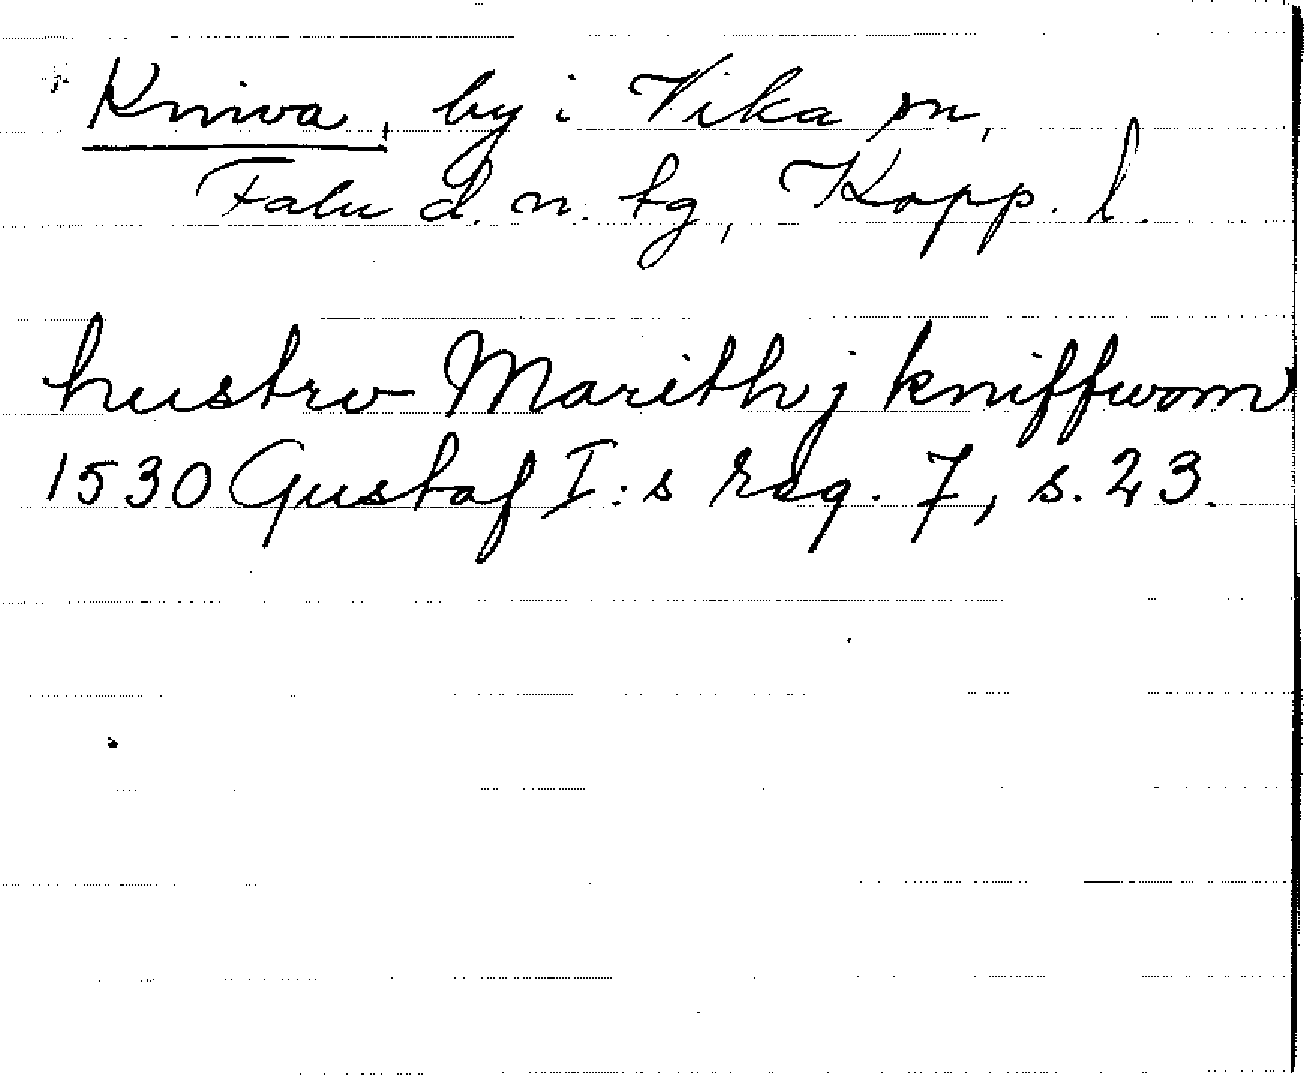 Kniva, by i Vika sn,
Falu d. n. tg, Kopp. l.
hustrw Marith j kniffwom
1530 Gustaf I:s reg. 7, s. 23.